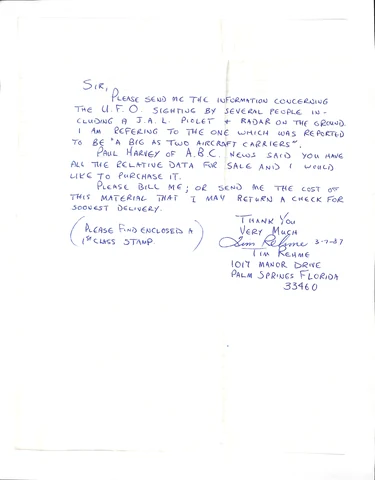 SIR,
PLEASE SEND ME THE INFORMATION CONCERNING
THE U.F.O. SIGHTING BY SEVERAL PEOPLE IN-
CLUDING A J.A.L. PIOLET + RADAR ON THE GROUND.
I AM REFERING TO THE ONE WHICH WAS REPORTED
TO BE "A BIG AS TWO AIRCROFT CARRIERS".
PAUL HARVEY OF A.B.C. NEWS SAID YOU HAVE
ALL THE RELATIVE DATA FOR SALE AND I WOULD
LIKE TO PURCHASE IT.
PLEASE BILL ME; OR SEND ME THE COST OFF
THIS MATERIAL THAT I MAY RETURN A CHECK FOR
SOONEST DELIVERY.
(PLEASE FIND ENCLOSED A
1ST CLASS STAMP.)
THANK YOU
VERY MUCH
Tim Rehme 3-7-87
TIM REHME
1017 MANOR DRIVE
PALM SPRINGS FLORIDA
33460